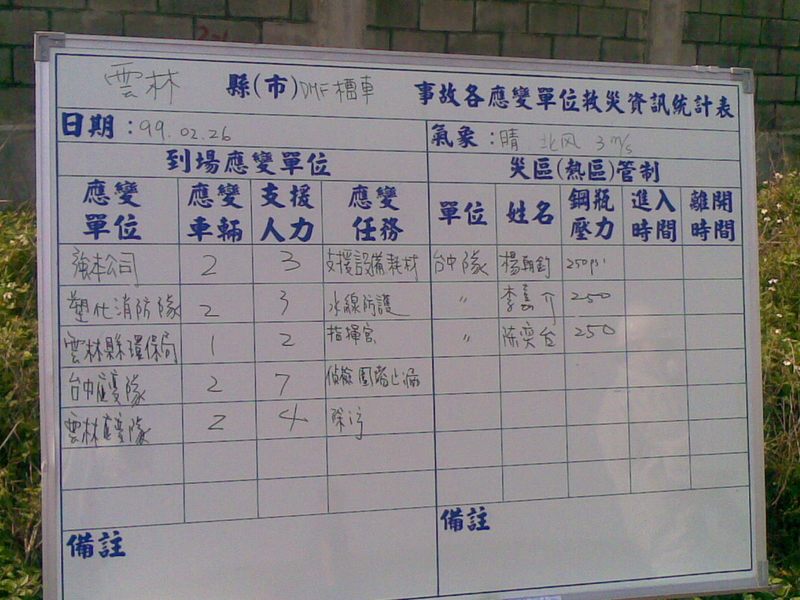 雲林 縣(市)DMF槽車 事故各應變單位救災資訊統計表
日期：99.02.26 氣象：晴 北风 3 m/s
到場應變單位 災區(熱區)管制
應變單位 應變車輛 支援人力 應變任務 單位 姓名 鋼瓶壓力 進入時間 離開時間
強本公司 2 3 支援設備耗材 台中隊 楊朝鈞 250psi
塑化消防隊 2 3 水線防護 〃 李嘉介 250
雲林縣環保局 1 2 指揮官 〃 陈奕台 250
台中應變隊 2 7 偵檢圍堵止漏
雲林應變隊 2 4 除污
備註 備註